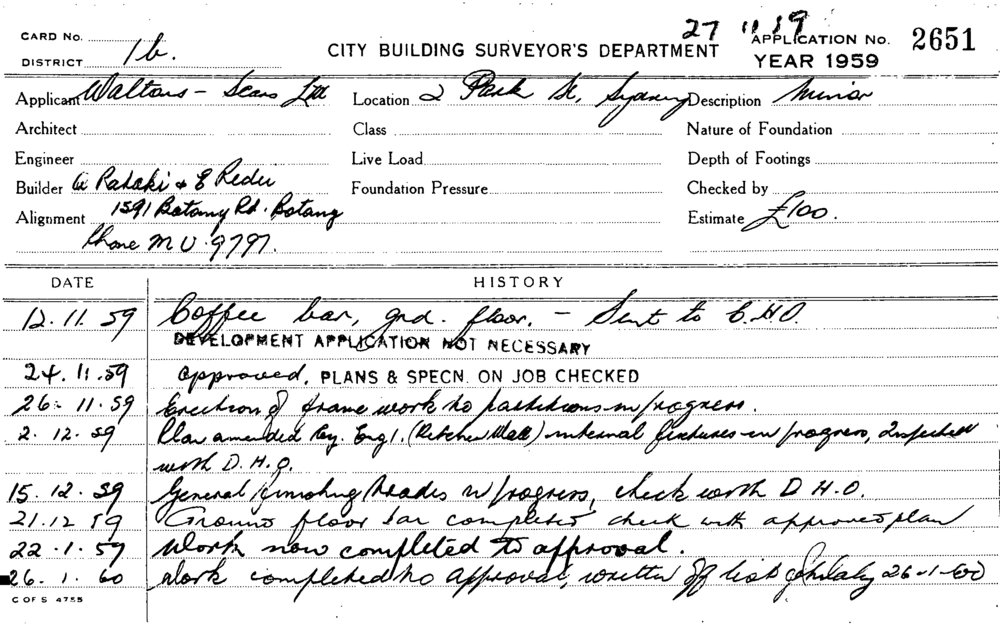 27 11 59
CARD No. CITY BUILDING SURVEYOR'S DEPARTMENT APPLICATION No. 2651
DISTRICT 1b. YEAR 1959
Applicant Waltons - Sears Ltd Location 2 Park St, Sydney Description Minor
Architect Class Nature of Foundation
Engineer Live Load Depth of Footings
Builder A Radaki & E Reder Foundation Pressure Checked by
Alignment 1591 Botany Rd. Botany Estimate £100.
Phone MU.9797.
DATE HISTORY
12.11.59 Coffee bar, grd. floor. - Sent to C.H.O.
DEVELOPMENT APPLICATION NOT NECESSARY
24.11.59 approved. PLANS & SPECN. ON JOB CHECKED
26.11.59 Erection of frame work to partitions in progress.
2.12.59 Plan amended by (Kitchen Wall) internal fixtures in progress, Inspected
with D.H.O.
15.12.59 General finishing trades in progress, check with D.H.O.
21.12.59 Ground floor bar completed check with approved plan
22.1.59 Work now completed to approval.
26.1.60 Work completed to approval, written off list 26-1-60
C OF S 4755